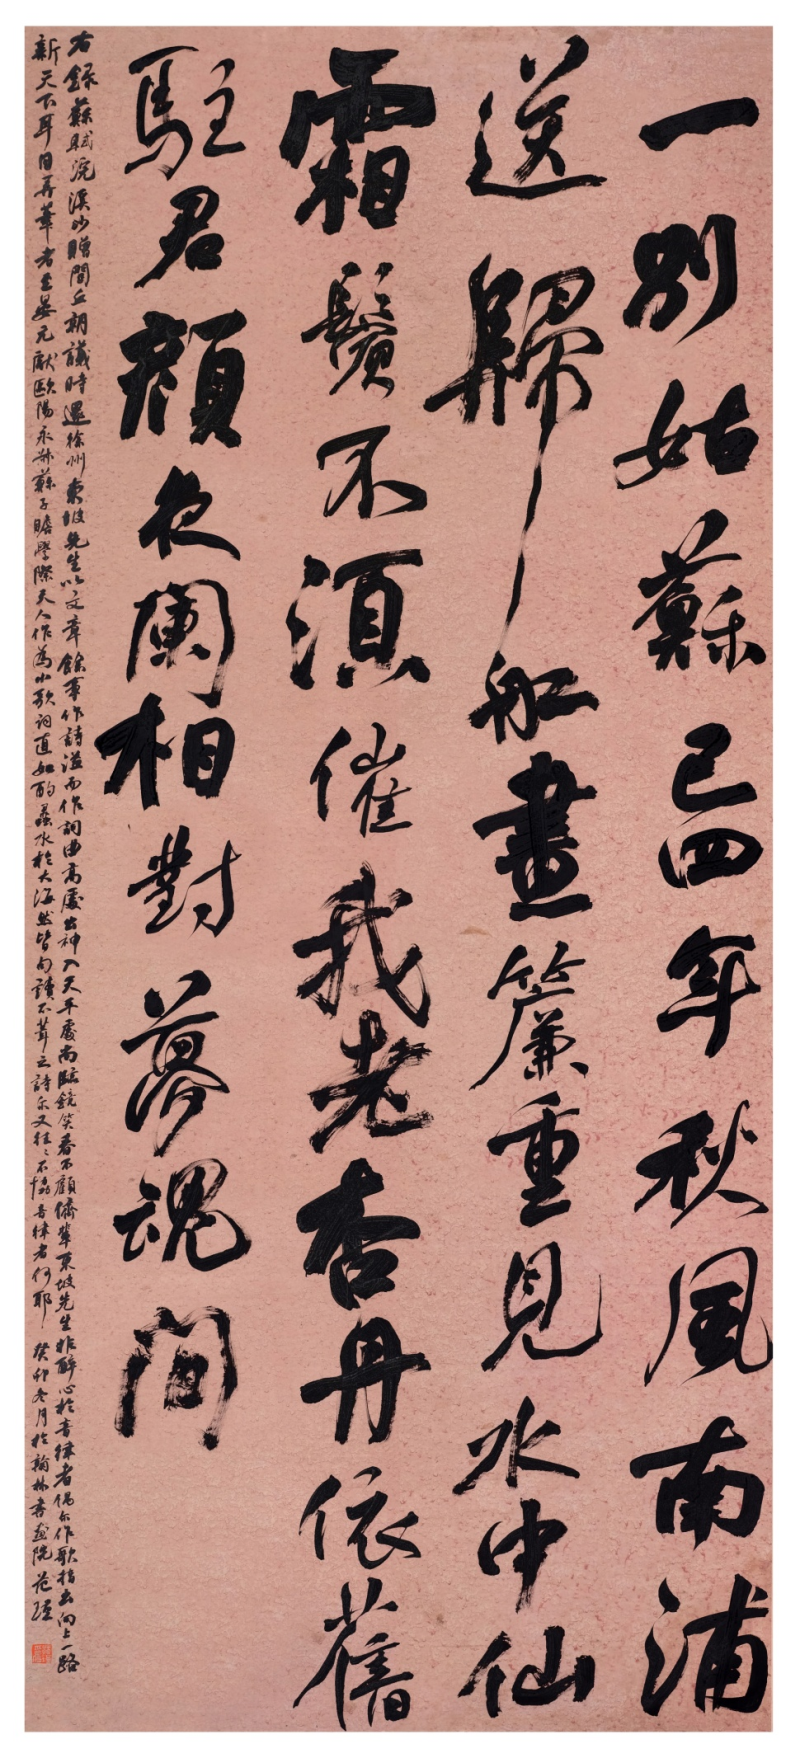 一別姑蘇已四年秋風南浦
送歸船畫簾重見水中仙
霜鬢不須催我老杏丹依舊
駐君顏夜闌相對夢魂間
右錄蘇軾浣溪沙贈閭丘朝議時還徐州東坡先生以文章餘事作詩溢而作詞曲高處出神入天平處尚臨鏡笑春不顧儕輩東坡先生非醉心於音律者偶爾作歌指出向上一路
新天下耳目弄筆者至晏元獻歐陽永叔蘇子瞻學際天人作為小歌詞直如酌蠡水於大海然皆句讀不葺之詩爾又往往不協音律者何耶 癸卯冬月於翰林書畫院范